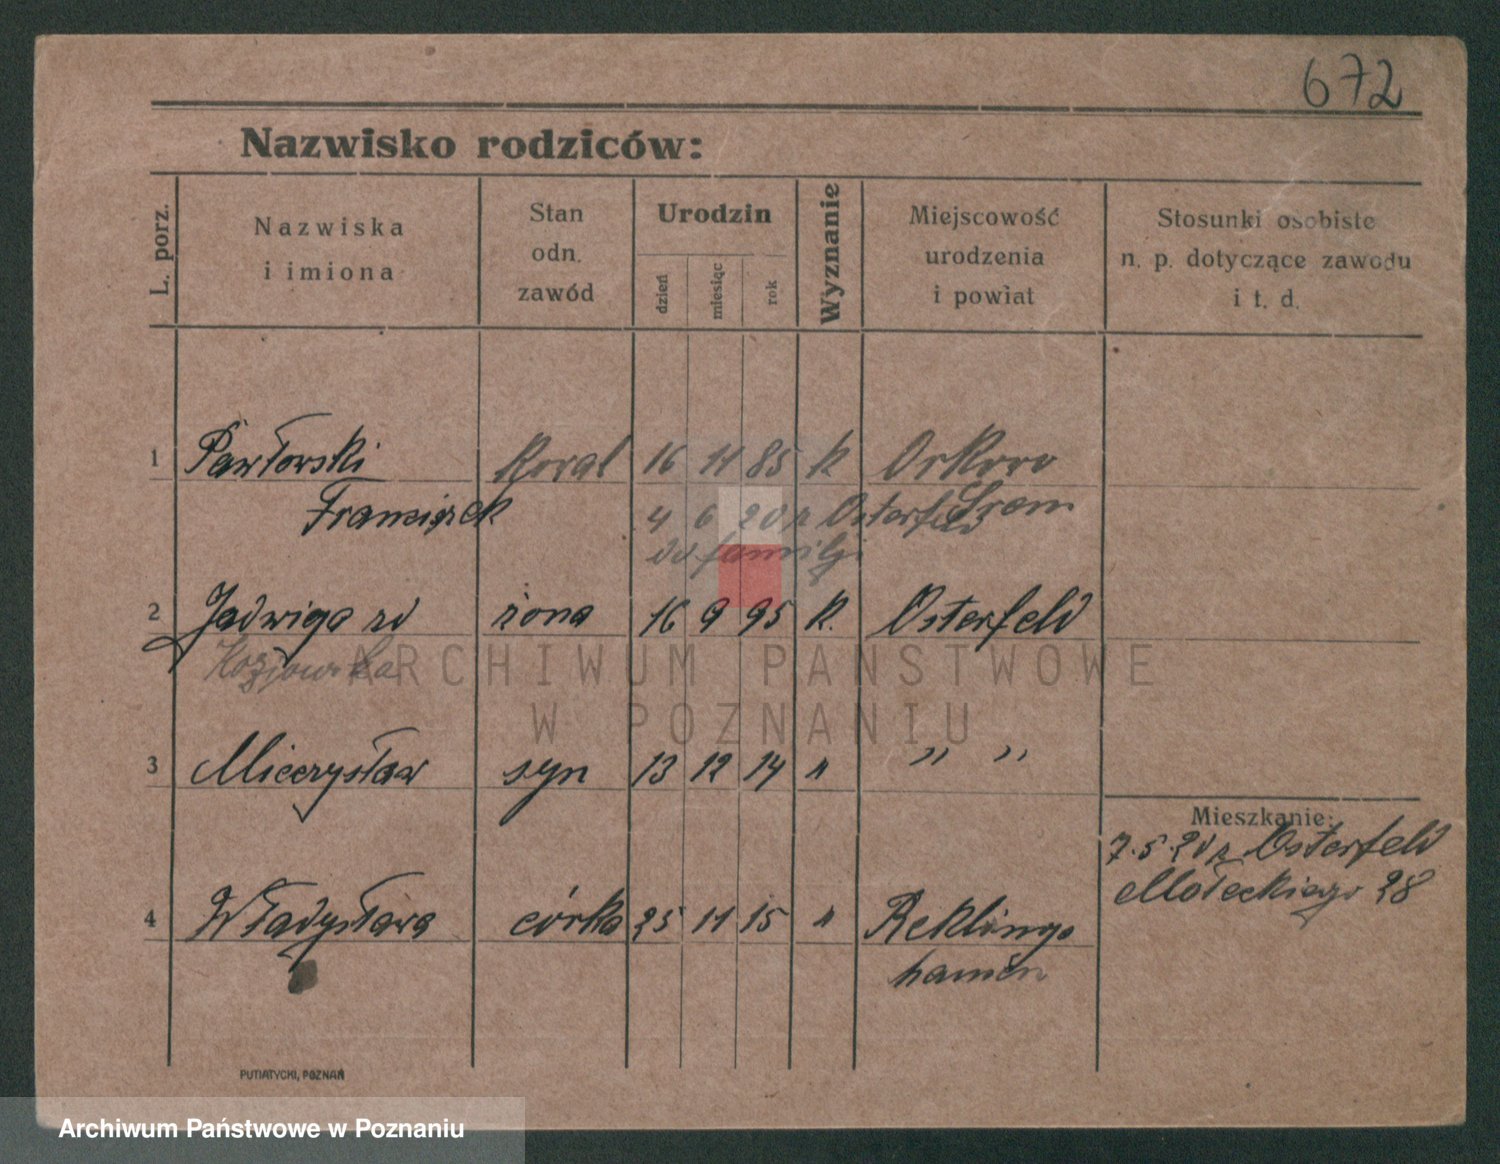 672
Nazwisko rodziców:
L. porz.
Nazwiska
i imiona
Stan
odn.
zawód
Urodzin
dzień
miesiąc
rok
Wyznanie
Miejscowość
urodzenia
i powiat
Stosunki osobiste
n. p. dotyczące zawodu
i t. d.
1 Pawłowski Koval 16 11 85 k
Franciszek 4 6 20 z Osterfeld Srem
do familji
2 Jadwiga zd żona 16 9 95 k. Osterfeld
3 Mieczysław syn 13 12 14 " " "
Mieszkanie:
7.5.20 z Osterfeld
Małeckiego 28
4 Władysława córka 25 11 15 " Reklings
hausen
ARCHIWUM PAŃSTWOWE
W POZNANIU
PUTIATYCKI, POZNAŃ
Archiwum Państwowe w Poznaniu